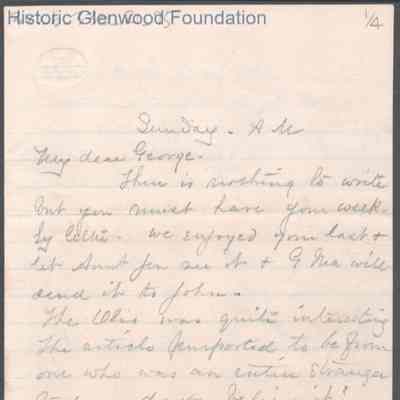 Historic Glenwood Foundation
1/4
Sunday. A M
My dear George.
There is nothing to write
but you must have your week-
ly letter. We enjoyed your last &
let Aunt Jen see it & G Ma will
send it to John.
The Olio was quite interesting
The article purported to be from
one who was an entire stranger